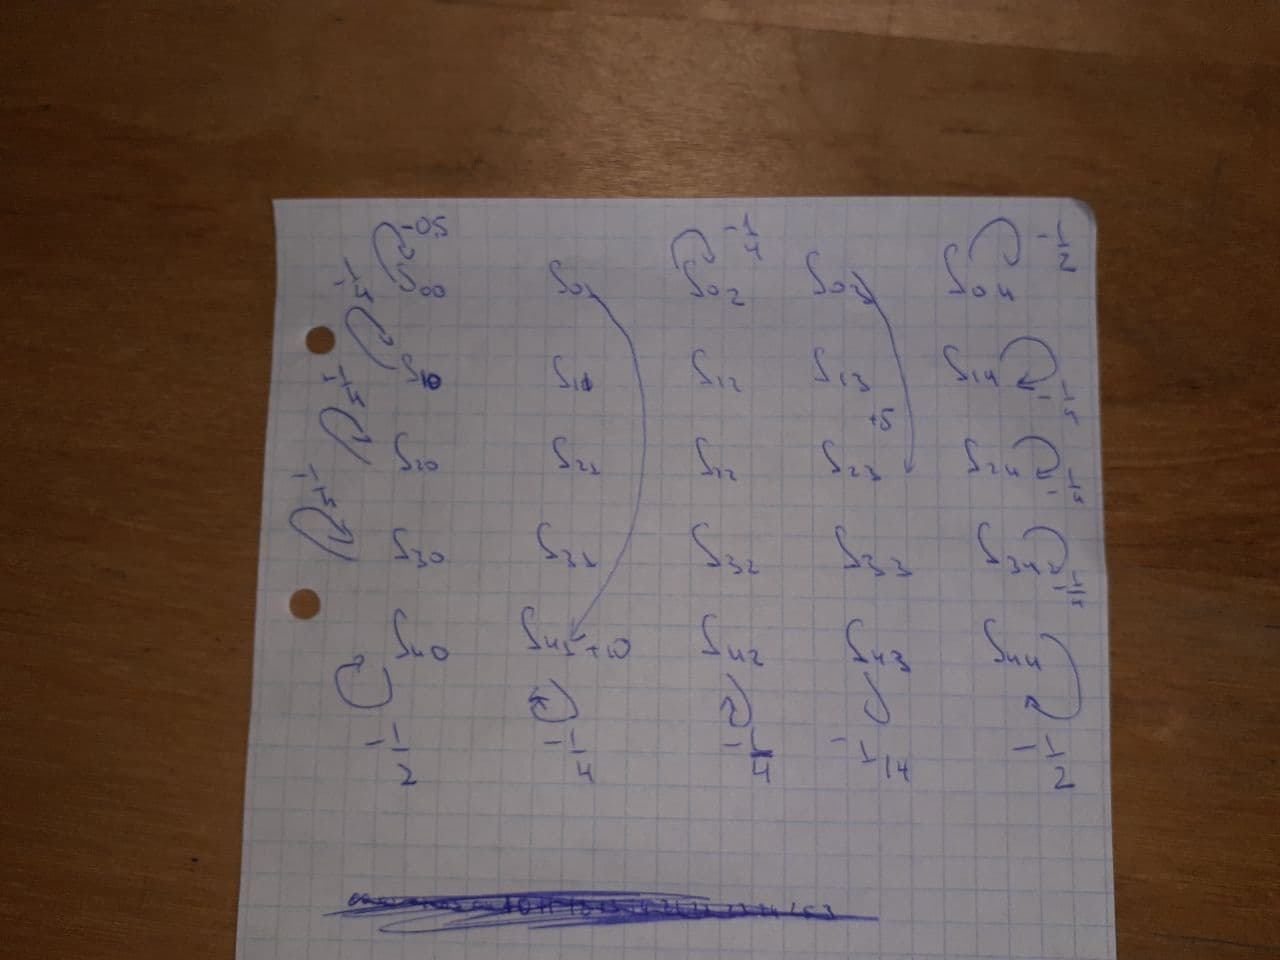 -0.5 -1/4 -1/2
S00 S01 S02 S03 S04
-1/4
S10 S11 S12 S13 S14
-1/4 +5 -1/4
S20 S21 S22 S23 S24
-1/4 -1/4
S30 S31 S32 S33 S34
-1/4
S40 S41 +10 S42 S43 S44
-1/2 -1/4 -1/4 -1/14 -1/2